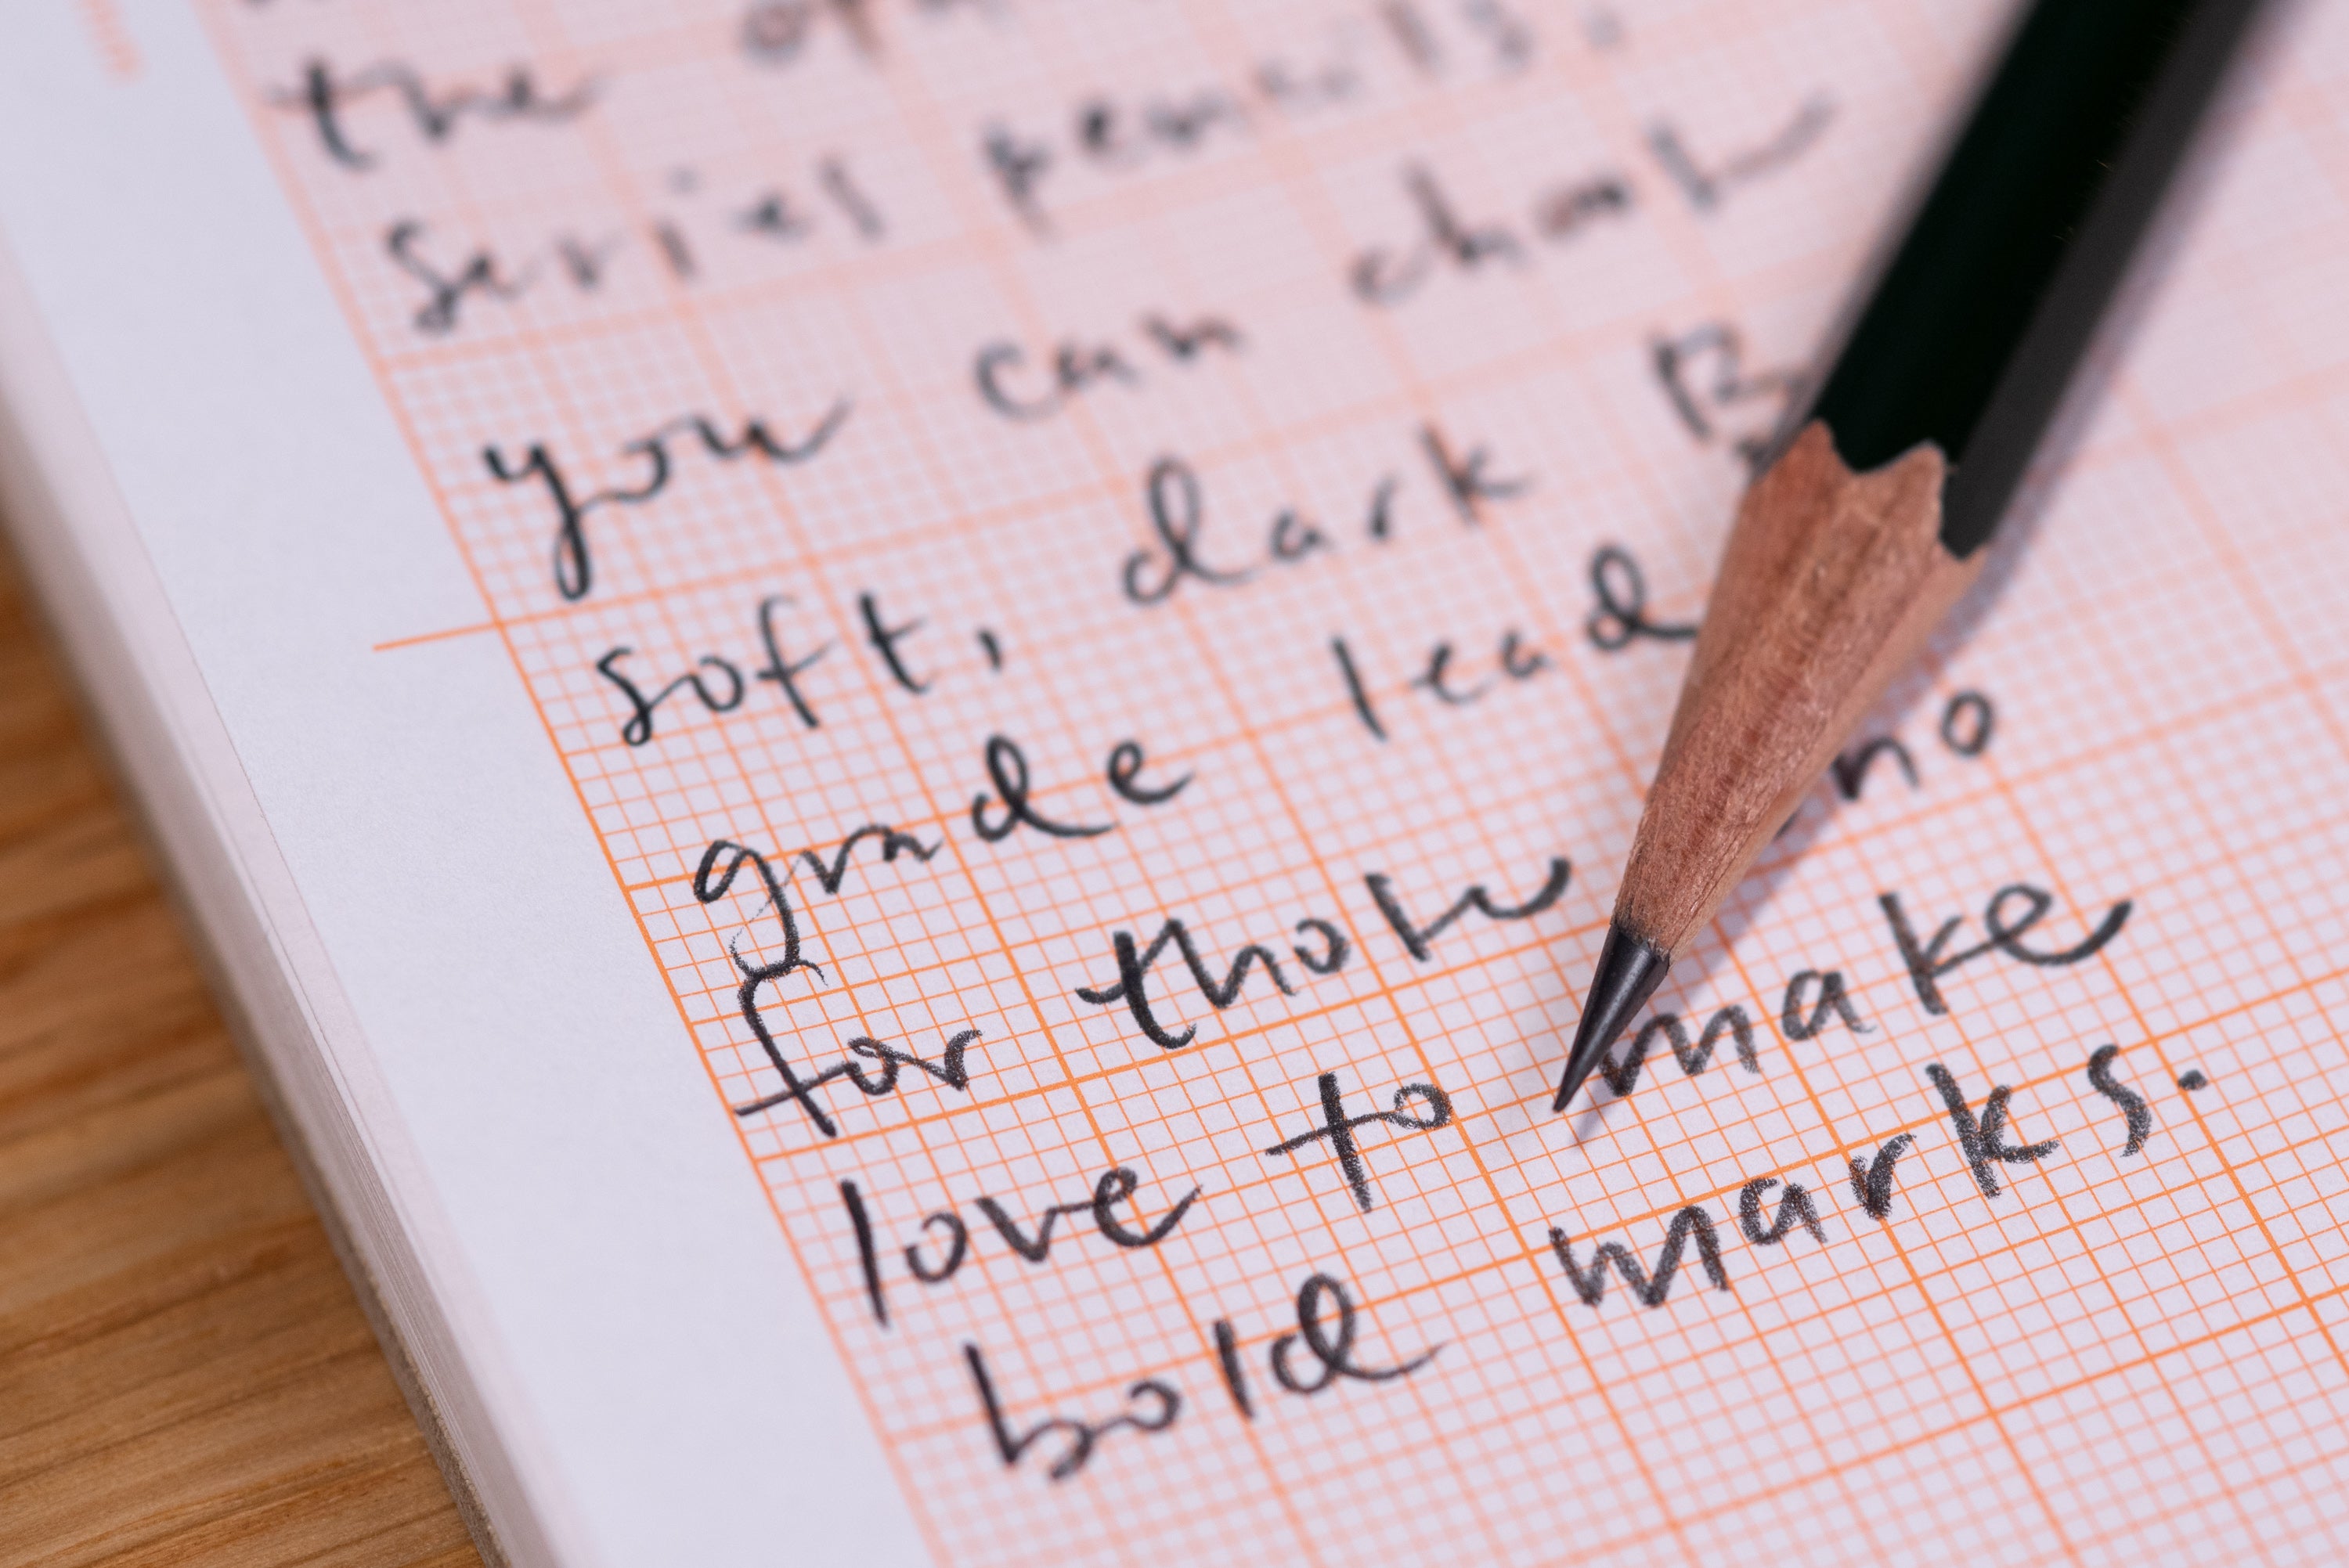 the
Series pencils.
you can choose
soft, dark B
grade lead
for those who
love to make
bold marks.